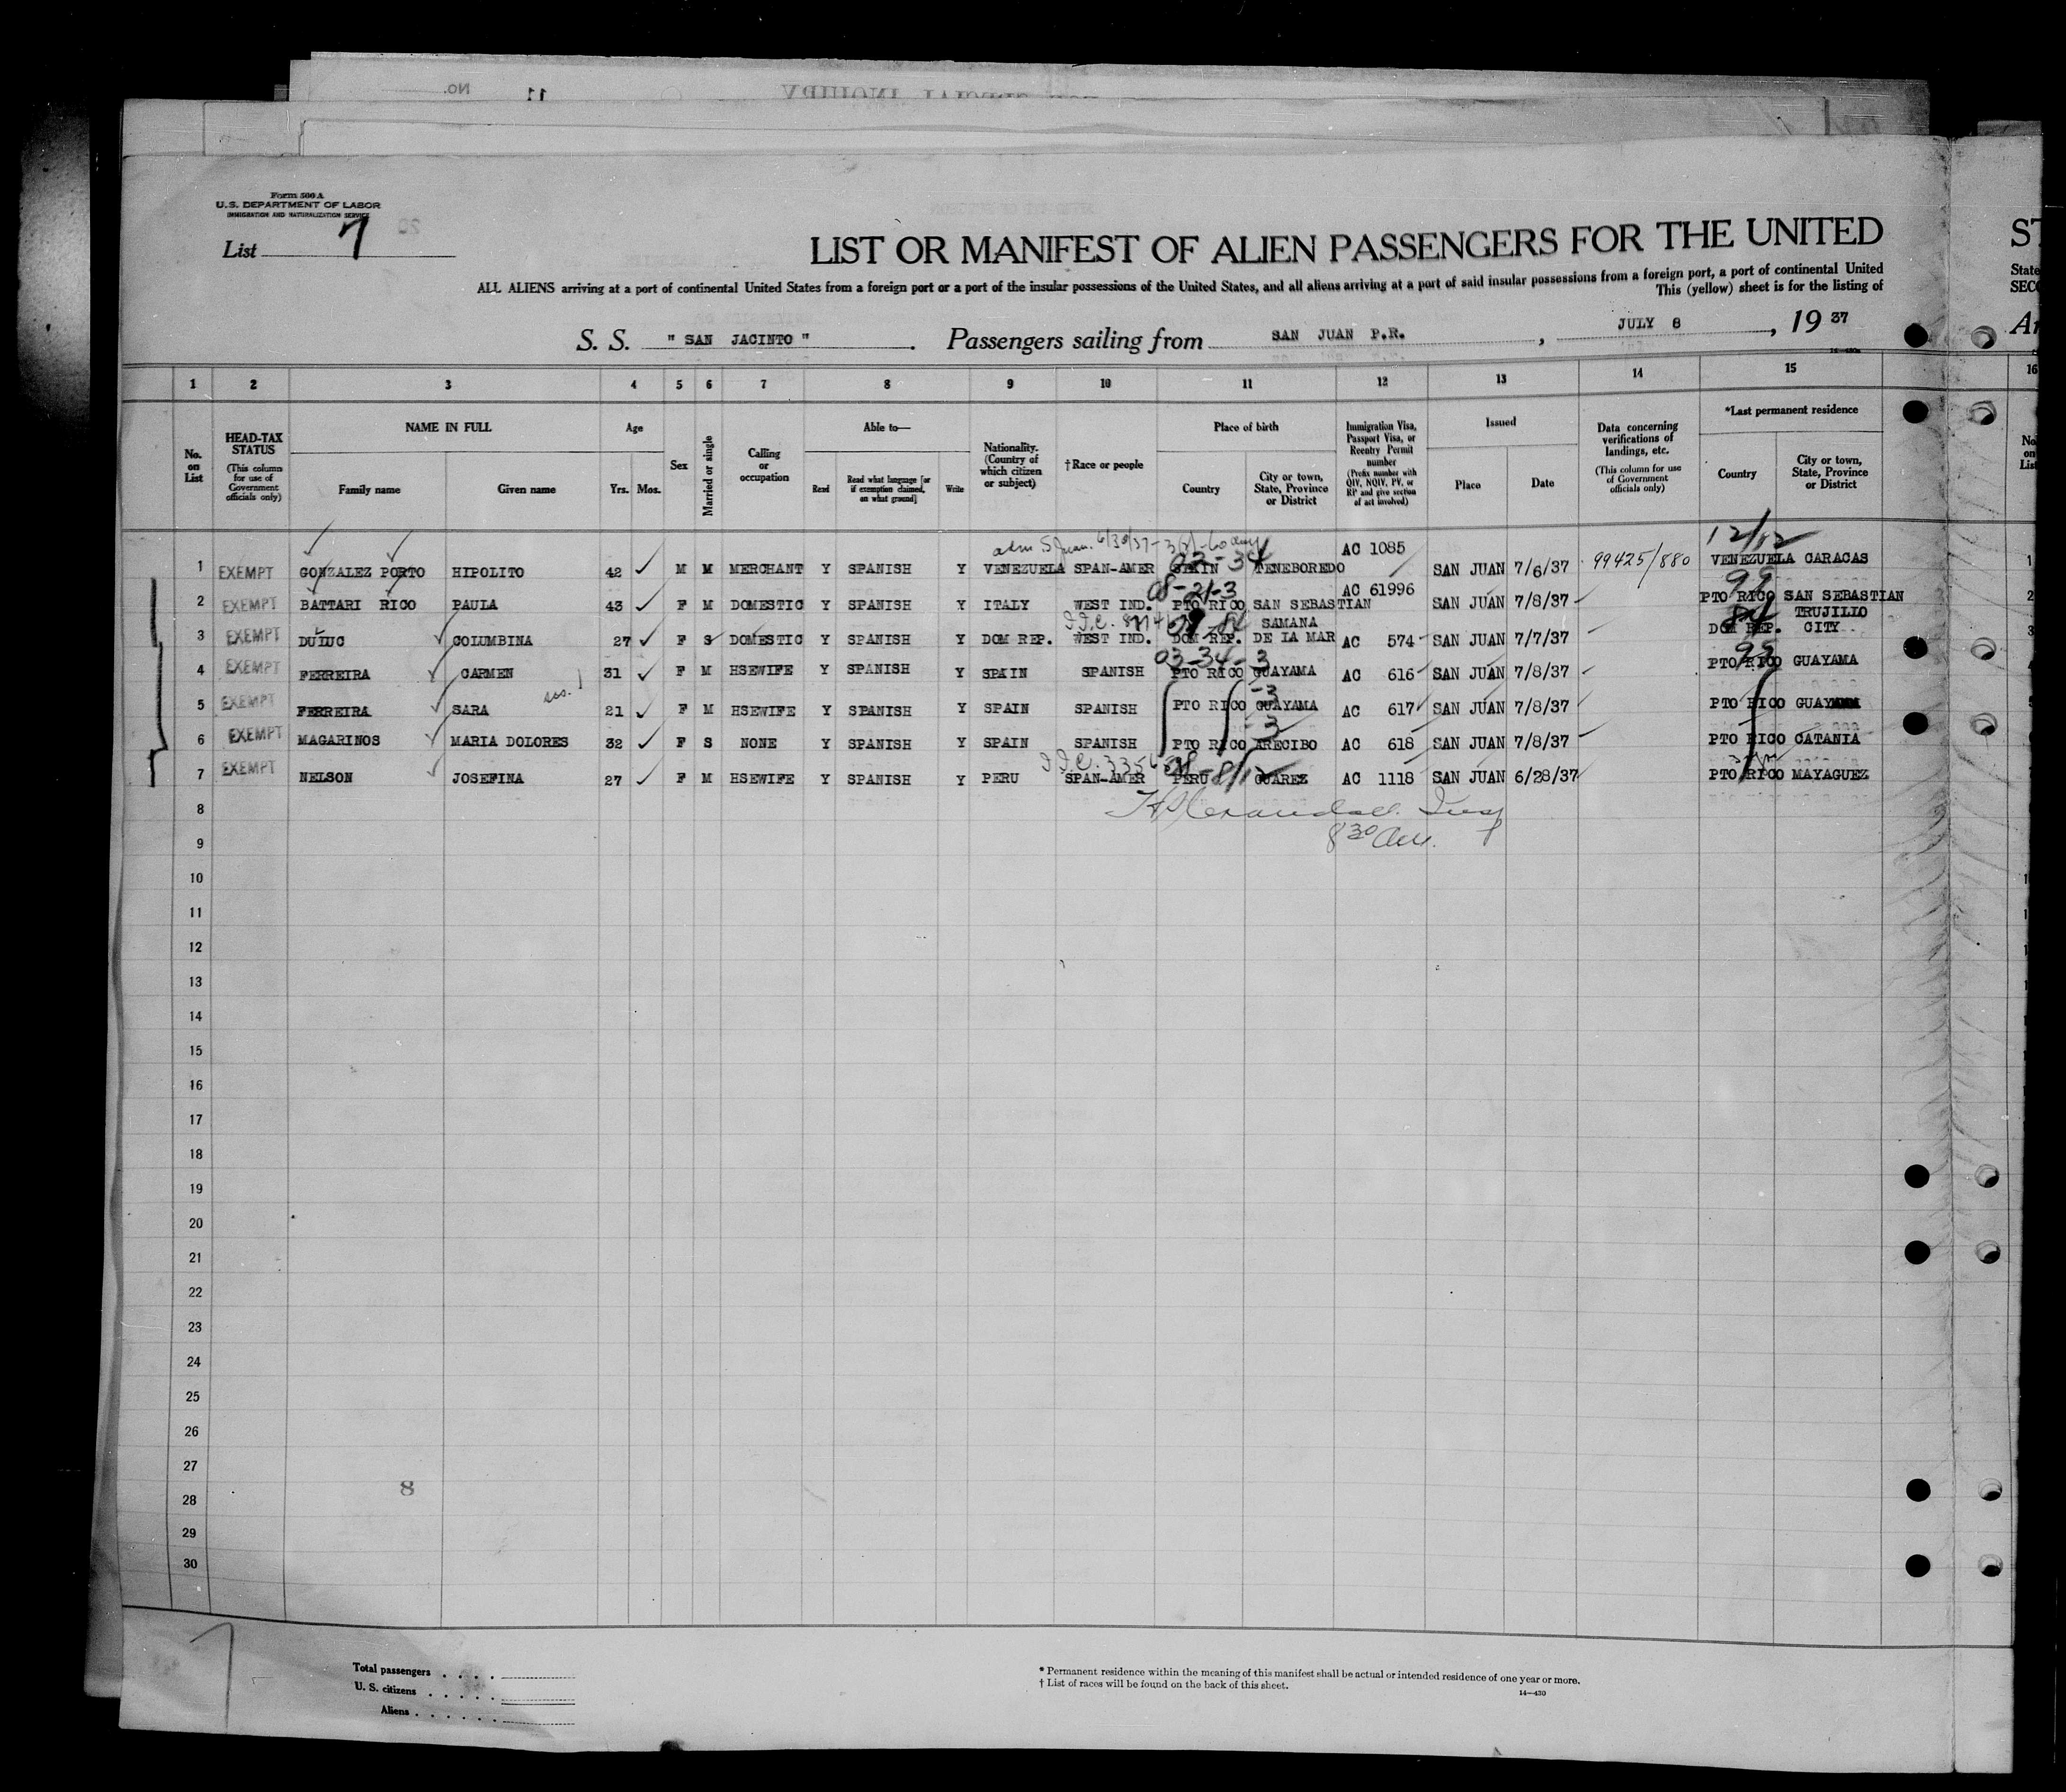 No. 11
Form 500 A
U.S. DEPARTMENT OF LABOR
IMMIGRATION AND NATURALIZATION SERVICE
List 7
LIST OR MANIFEST OF ALIEN PASSENGERS FOR THE UNITED
ST
ALL ALIENS arriving at a port of continental United States from a foreign port or a port of the insular possessions of the United States, and all aliens arriving at a port of said insular possessions from a foreign port, a port of continental United
State
This (yellow) sheet is for the listing of
SECO
S. S. " SAN JACINTO " . Passengers sailing from SAN JUAN P.R. , JULY 8 , 19 37
1 2 3 4 5 6 7 8 9 10 11 12 13 14 15 16
No. on List
HEAD-TAX STATUS
(This column for use of Government officials only)
NAME IN FULL
Family name Given name
Age
Yrs. Mos.
Sex
Married or single
Calling or occupation
Able to—
Read
Read what language [or if exemption claimed, on what ground]
Write
Nationality. (Country of which citizen or subject)
†Race or people
Place of birth
Country
City or town, State, Province or District
Immigration Visa, Passport Visa, or Reentry Permit number
(Prefix number with QIV, NQIV, PV, or RP and give section of act involved)
Issued
Place Date
Data concerning verifications of landings, etc.
(This column for use of Government officials only)
*Last permanent residence
Country
City or town, State, Province or District
No. on List
adm S Juan. 6/30/37 - 3(2) - 60 days
12/12
1 EXEMPT GONZALEZ PORTO HIPOLITO 42 M M MERCHANT Y SPANISH Y VENEZUELA SPAN-AMER SPAIN TENEBOREDO AC 1085 SAN JUAN 7/6/37 99425/880 VENEZUELA CARACAS 1
08-21-3
99
2 EXEMPT BATTARI RICO PAULA 43 F M DOMESTIC Y SPANISH Y ITALY WEST IND. PTO RICO SAN SEBASTIAN AC 61996 SAN JUAN 7/8/37 PTO RICO SAN SEBASTIAN 2
3 EXEMPT DULUC COLUMBINA 27 F S DOMESTIC Y SPANISH Y DOM REP. WEST IND. DOM REP. SAMANA DE LA MAR AC 574 SAN JUAN 7/7/37 DOM REP. TRUJILIO CITY 3
03-34-3
99
4 EXEMPT FERREIRA CARMEN 31 F M HSEWIFE Y SPANISH Y SPAIN SPANISH PTO RICO GUAYAMA AC 616 SAN JUAN 7/8/37 PTO RICO GUAYAMA
-3
5 EXEMPT FERREIRA SARA 21 F M HSEWIFE Y SPANISH Y SPAIN SPANISH PTO RICO GUAYAMA AC 617 SAN JUAN 7/8/37 PTO RICO GUAYAMA
-3
6 EXEMPT MAGARINOS MARIA DOLORES 32 F S NONE Y SPANISH Y SPAIN SPANISH PTO RICO ARECIBO AC 618 SAN JUAN 7/8/37 PTO RICO CATANIA
7 EXEMPT NELSON JOSEFINA 27 F M HSEWIFE Y SPANISH Y PERU SPAN-AMER PERU GUAREZ AC 1118 SAN JUAN 6/28/37 PTO RICO MAYAGUEZ
8
8 30 Am.
9
10
11
12
13
14
15
16
17
18
19
20
21
22
23
24
25
26
27
8
28
29
30
Total passengers . . . .
U. S. citizens . . . . .
Aliens . . . . . .
* Permanent residence within the meaning of this manifest shall be actual or intended residence of one year or more.
† List of races will be found on the back of this sheet.
14—430